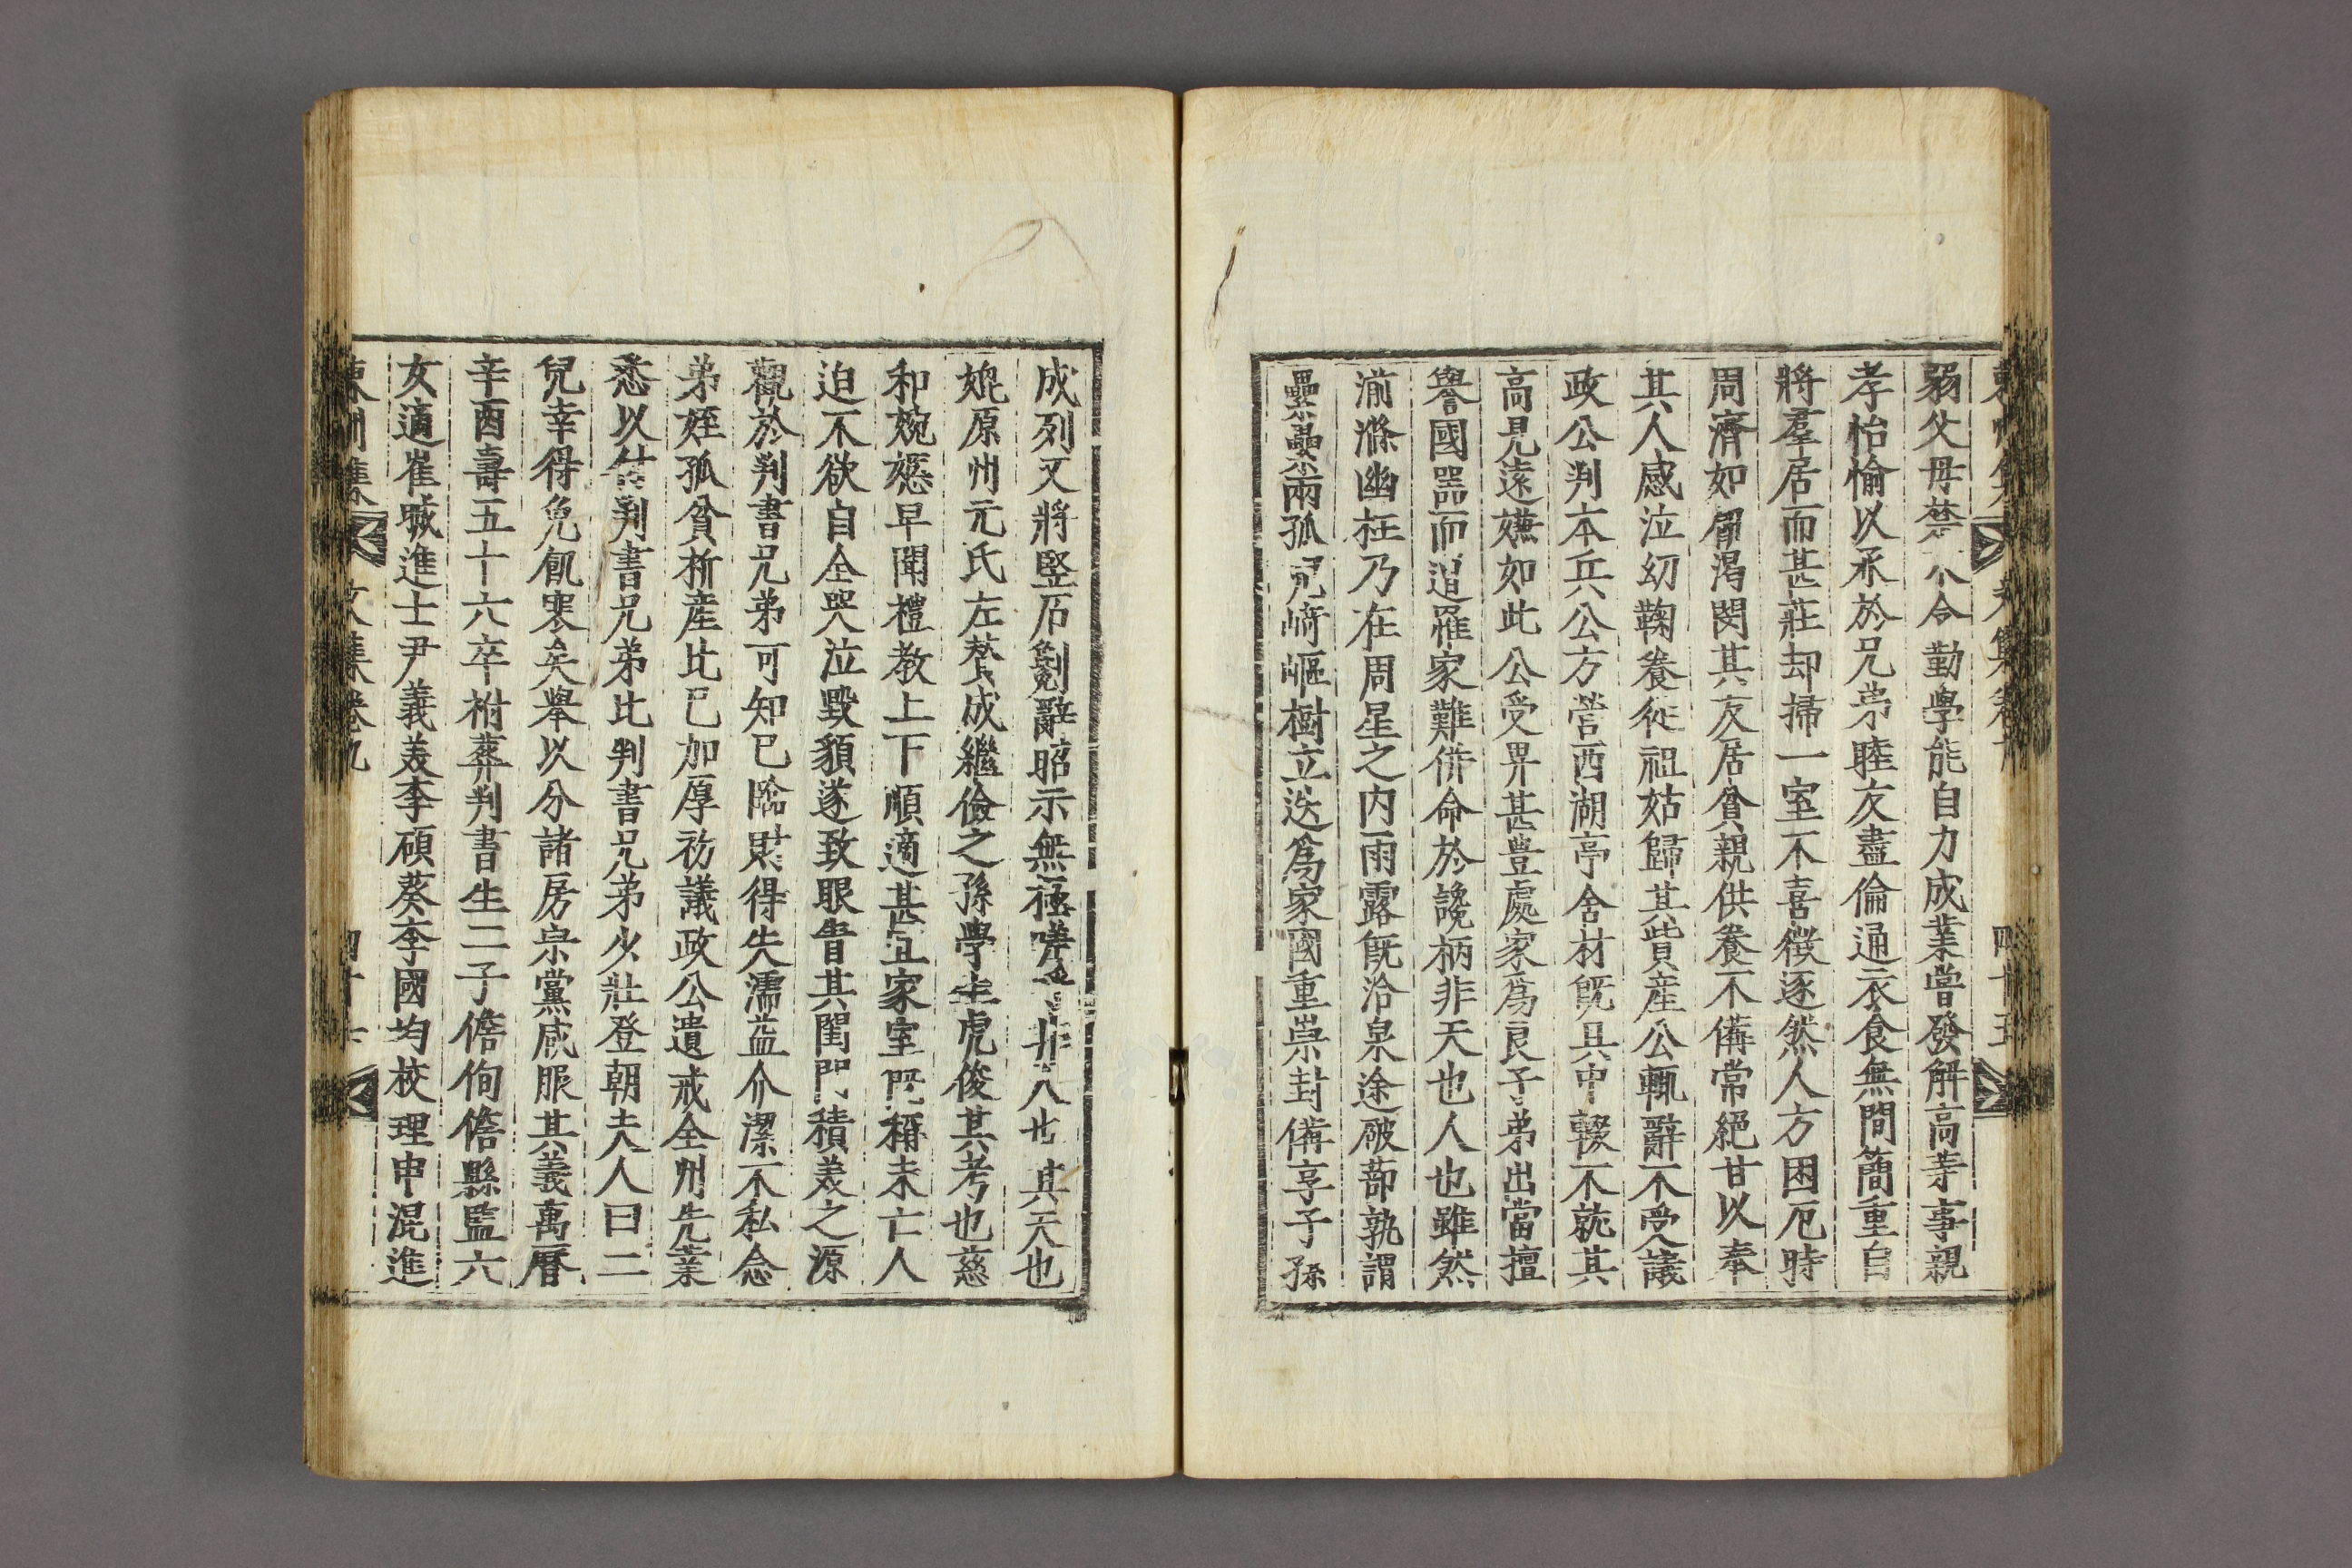 弱父母禁不令勤學能自力成業嘗發解高等事親
孝怡愉以承於兄弟睦友盡倫通衣食無間簡重自
將羣居而甚莊却掃一室不喜徵逐然人方困厄時
周濟如飢渴閔其友居貧親供養不備常絕甘以奉
其人感泣幼鞠養從祖姑歸其貲産公輒辭不受議
政公判本兵公方營西湖亭舍材旣具中輟不就其
高見遠嫌如此公受畀甚豊處家爲良子弟出當擅
譽國器而遭罹家難倂命於讒柄非天也人也雖然
湔滌幽枉乃在周星之內雨露旣洽泉途破蔀孰謂
纍纍兩孤
崎嶇樹立迭爲家國重崇封備享子孫
成列又將竪石劖辭昭示無極嗟
非人也其天也
娩原州元氏左贊成繼儉之孫學生虎俊其考也慈
和婉嫕早聞禮教上下順適甚宜家室旣稱未亡人
迫不欲自全哭泣毀貌遂致眼眚其閨門積美之源
觀於判書兄弟可知已臨財得失濡益介潔不私念
弟姪孤貧析産比已加厚初議政公遺戒全州先業
悉以付判書兄弟比判書兄弟少壯登朝夫人曰二
兒幸得免飢寒矣擧以分諸房宗黨咸服其義萬曆
辛酉壽五十六卒祔葬判書生二子儋侚儋縣監六
女適崔㻴進士尹義美李碩葵李國均校理申混進
東州集 文集卷九 四十六